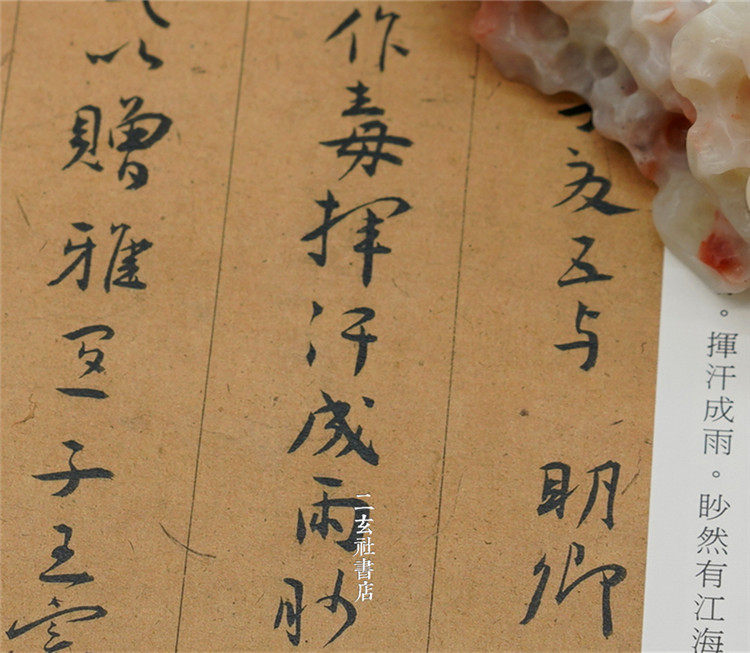 揮汗成雨。眇然有江海
亥五与 明卿
作毒揮汗成雨眇
以贈雅宜子王
二玄社書店